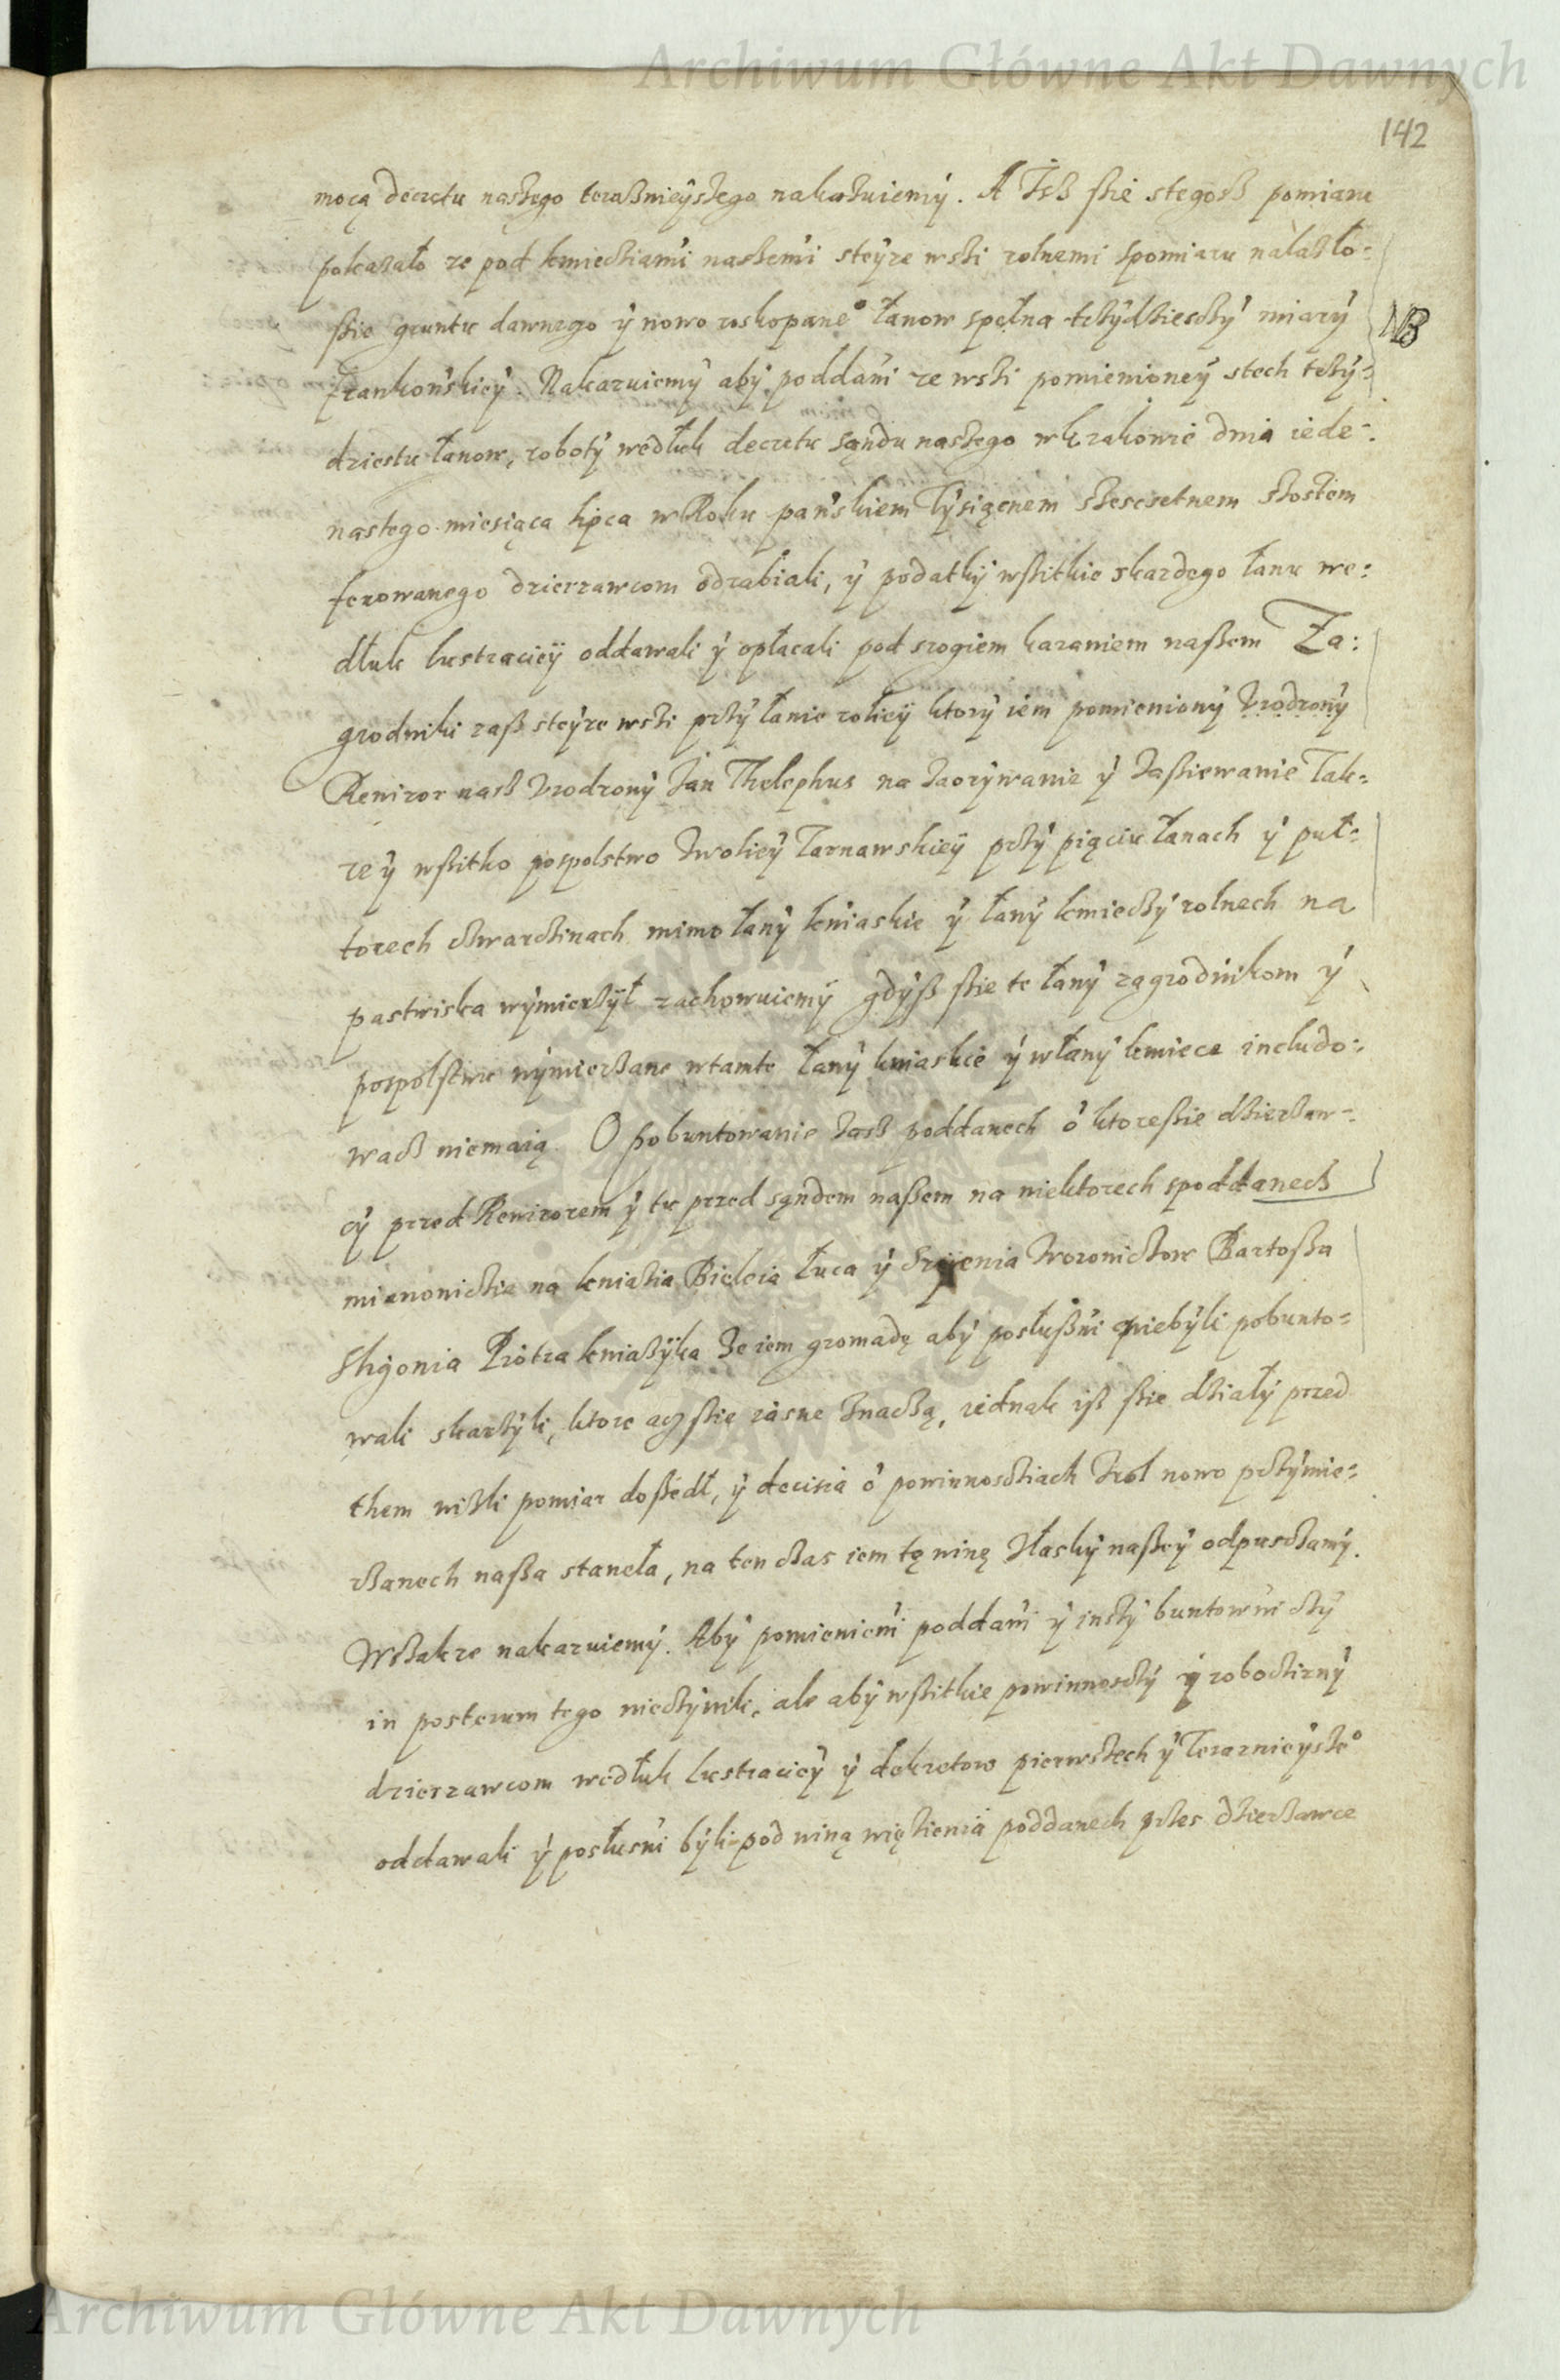 Archiwum Główne Akt Dawnych
142
mocą decretu naszego teraßnieyszego nakazuiemy. A Isz ßie stegosz pomiaru
pokazało ze pod kmieciami naszemi steyze wsi rolnemi spomiaru nalazło:
ßie gruntu dawnego y nowo roskopane° łanow spełna trzydziesczy miary
NB
frankońskiey. Nakazuiemy aby poddani ze wsi pomienioney stech trzy:
dziestu łanow, roboty wedłuk decretu sądu naszego w krakowie dnia iede:
nastego miesiąca lipca w Roku pańskiem Tysiącnem szescsetnem szostem
ferowanego dzierzawcom odrabiali, y podatky wßitkie skazdego łanu we:
dłuk lustraciey oddawali y opłacali pod srogiem karaniem naßem Za:
grodniki zaß steyze wsi przy łanie roliey ktory iem pomieniony Urodzony
Rewizor nasz Urodzony Jan Thelephus na zaorywanie y zasiewanie Tak:
ze y wßitko pospolstwo zwoliey Tarnawskiey przy piąciu łanach y puł:
torech czwarcinach mimo łany kniaskie y łany kmieczy rolnech na
pastwiska wymierzył zachowuiemy gdyß ßie te łany zagrodnikom y
pospolstwu wymierzane wtamte łany kniaskie y włany kmiece includo:
wacz niemaią. O pobuntowanie zasz poddanech o ktoreßie dzierzaw:
cy przed Rewizorem y tu przed sądem naßem na niektorech spoddanech
mianowicie na kniazia Bieleia Łuca y Woroniczow Bartoßa
Piotra kniazyka ze iem gromadę aby posłußni niebyli pobunto:
wali skarzyli, ktore acz ßie iasne znaczą, iednak iß ßie działy przed
them niszli pomiar doßedł, y decisia o powinnosciach zrol nowo przymie:
rzanech naßa staneła, na ten czas iem tę winę złasky naßey odpusczamy.
Wszakze nakazuiemy. Aby pomienieni poddani y inszy buntowniczy
in posterum tego nieczynili, ale aby wßitkie powinnosczy y robocizny
dzierzawcom wedłuk lustraciey y dekretow pierwszech y Teraznieysze°
oddawali y posłusni byli pod winą więzienia poddanech przes dzierzawce
Archiwum Główne Akt Dawnych